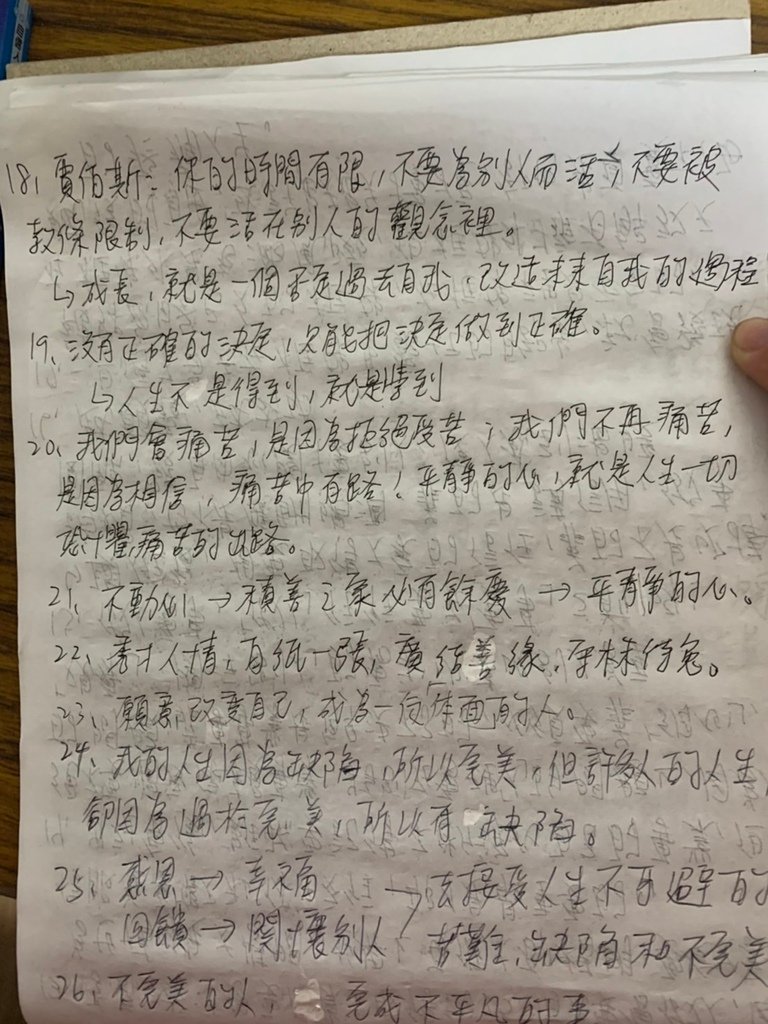 18、賈伯斯：你的時間有限，不要為別人而活，不要被
教條限制，不要活在別人的觀念裡。
↳成長，就是一個否定過去自我，改造未來自我的過程
19、沒有正確的決定，只能把決定做到正確。
↳人生不是得到，就是學到
20、我們會痛苦，是因為拒絕受苦；我們不再痛苦，
是因為相信，痛苦中有路！平靜的心，就是人生一切
恐懼痛苦的出路。
21、不動心→積善之家必有餘慶→平靜的心。
22、秀才人情，有紙一張，廣結善緣，守株待兔。
23、願意改變自己，成為一位体面的人。
24、我的人生因為缺陷，所以完美，但許多人的人生，
卻因為過於完美，所以有缺陷。
25、感恩→幸福→去接受人生不可避的
回饋→関懷別人 苦難，缺陷和不完美
26、不完美的人，完成不平凡的事